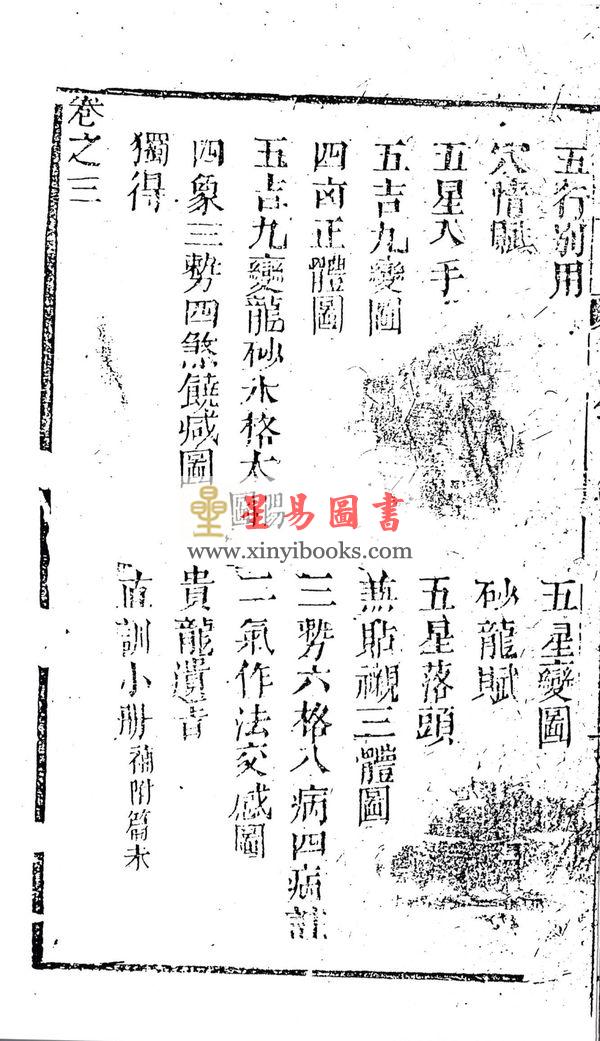 五行別用
五星變圖
穴情賦
砂龍賦
五星入手
五星落頭
五吉九變圖
無貼襯三體圖
四凶正體圖
三勢六格八病四病註
五吉九變龍砂水格太陽圖
二氣作法交感圖
四象三勢四煞饒减圖
貴龍遺音
獨得
直訓小册 補附篇末
卷之三
星易圖書
www.xinyibooks.com